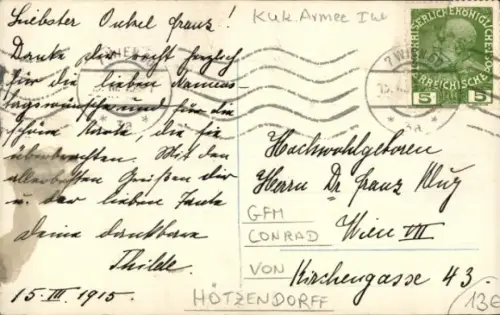 Liebster Onkel Franz!
Danke dir recht herzlich
für die lieben Namens-
tagswünsche und für die
schöne Karte, die sie
überbrachten. Mit den
allerbesten Grüßen dir
u. der lieben Tante
deine dankbare
Thilde.
15. III. 1915.
K.u.K. Armee
KAISERLICHE KÖNIGLICHE
ÖSTERREICHISCHE
5 5
7 WIEN
Hochwohlgeboren
Herrn Dr. Franz
Wien VII
Kirchengasse 43.
GFM
CONRAD
VON
HÖTZENDORFF
13E